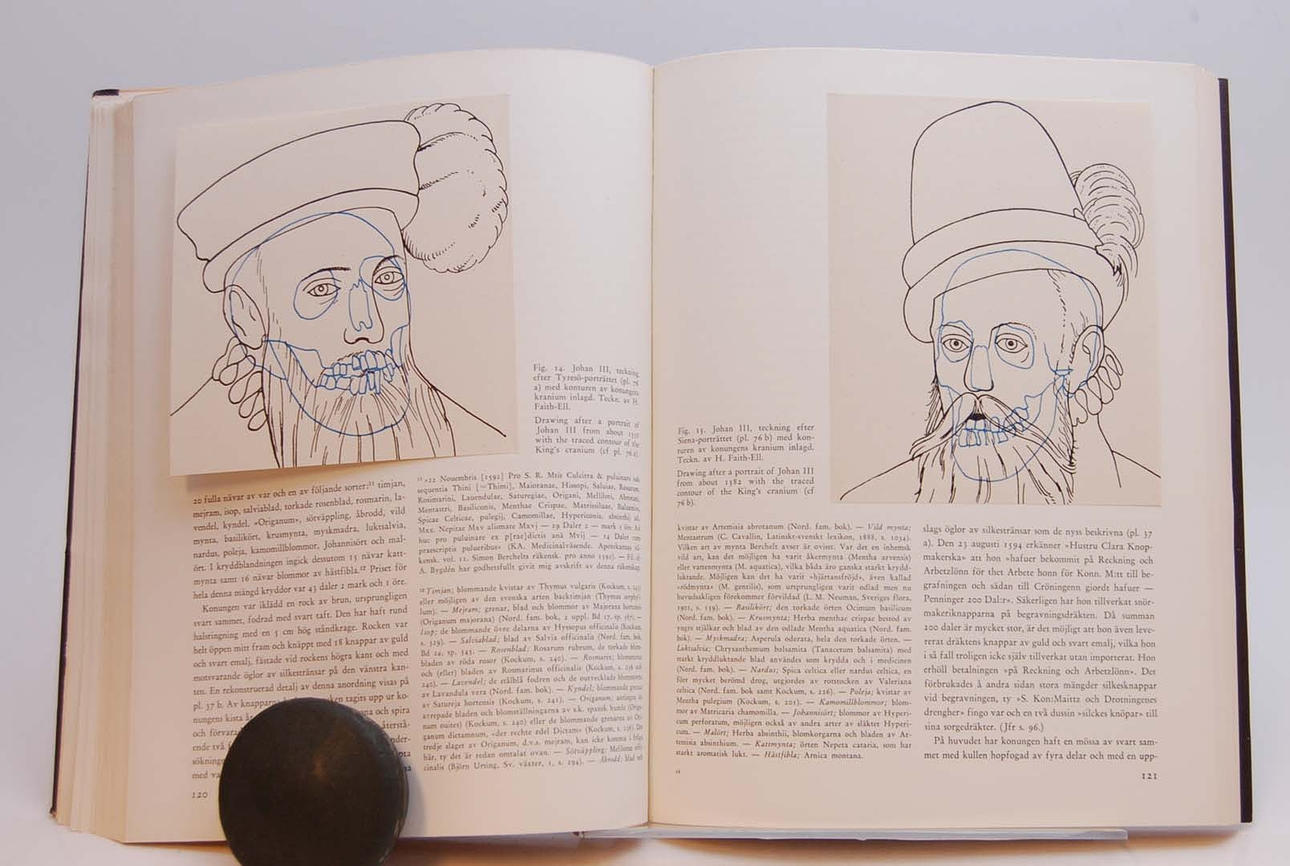 Fig. 14. Johan III, teckning
efter Tyresö-porträttet (pl. 76
a) med konturen av konungens
kranium inlagd. Teckn. av H.
Faith-Ell.
Drawing after a portrait of
Johan III from about
with the traced contour of the
King's cranium (cf pl. 76 a).
20 fulla nävar av var och en av följande sorter:¹¹ timjan,
mejram, isop, salviablad, torkade rosenblad, rosmarin, la-
vendel, kyndel, »Origanum», sötväppling, åbrodd, vild
mynta, basilikört, krusmynta, myskmadra, luktsalvia,
nardus, poleja, kamomillblommor, Johannisört och mal-
ört. I kryddblandningen ingick dessutom 15 nävar katt-
mynta samt 16 nävar blommor av hästfibla.¹² Priset för
hela denna mängd kryddor var 43 daler 2 mark och 1 öre.
Konungen var iklädd en rock av brun, ursprungligen
svart sammet, fodrad med svart taft. Den har haft rund
halsringning med en 5 cm hög ståndkrage. Rocken var
helt öppen mitt fram och knäppt med 18 knappar av guld
och svart emalj, fästade vid rockens högra kant och med
motsvarande öglor av silkestränsar på den vänstra kan-
ten. En rekonstruerad detalj av denna anordning visas på
pl. 37 b. Av knapparna tagits upp ur ko-
nungens kista och spira
och förvara
ende två
sökning
med va
120
¹¹ »22 Nouembris [1592] Pro S. R. Mtis Culcitra & puluinari
sequentia Thini [=Thimi], Maioranae, Hissopi, Saluiae, Rosarum,
Rosimarini, Lauendulae, Saturegiae, Origani, Melliloti,
Mentastri, Basiliconis, Menthae Crispae, Matrisiluae,
Spicae Celticae, pulegij, Camomillae, Hypericonis, absinthij
Mxx. Nepitae Mxv alismate Mxvj — 29 Daler 2 — mark 1 öre
huc pro puluinare ex p[rae]dictis anä Mvj — 14 Daler
praescriptis pulueribus» (KA. Medicinalväsende.
kensk. vol. 11. Simon Berchelts räkensk. pro anno 1592). —
A. Bygdén har godhetsfullt givit mig avskrift av denna räkenskap.
¹² Timjan; blommande kvistar av Thymus vulgaris (Kockum, s. 245)
eller möjligen av den svenska arten backtimjan (Thymus serphyl-
lum). — Mejram; grenar, blad och blommor av Majorana hortensis
(Origanum majorana) (Nord. fam. bok, 2 uppl. Bd 17, sp. 787; —
Isop; de blommande övre delarna av Hyssopus officinalis (Kockum,
s. 329). — Salviablad; blad av Salvia officinalis (Nord. fam. bok,
Bd 24, sp. 345. — Rosenblad; Rosarum rubrum, de torkade blom-
bladen av röda rosor (Kockum, s. 240). — Rosmarin; blommor
och (eller) bladen av Rosmarinus officinalis (Kockum, s. 236
240). — Lavendel; de stälblå fodren och de outvecklade blommorna
av Lavandula vera (Nord. fam. bok). — Kyndel; blommande grenar
av Satureja hortensis (Kockum, s. 241). — Origanum; antingen
avrepade bladen och blomställningarna av s.k. spansk humle (Origa-
num onites) (Kockum, s. 240) eller de blommande grenarna av Ori-
ganum dictamnum, »der rechte edel Dictam» (Kockum, s. 238). Det
tredje slaget av Origanum, d.v.s. mejram, kan icke komma i fråga
här, ty det är redan omtalat ovan. — Sötväppling; Melilotus offi-
cinalis (Björn Ursing, Sv. växter, 1, s. 294). — Åbrodd; blad och
Fig. 15. Johan III, teckning efter
Siena-porträttet (pl. 76 b) med kon-
turen av konungens kranium inlagd.
Teckn. av H. Faith-Ell.
Drawing after a portrait of Johan III
from about 1582 with the traced
contour of the King's cranium (cf
76 b).
kvistar av Artemisia abrotanum (Nord. fam. bok). — Vild mynta;
Mentastrum (C. Cavallin, Latinskt-svenskt lexikon, 1888, s. 1034).
Vilken art av mynta Berchelt avser är ovisst. Var det en inhemsk
vild art, kan det möjligen ha varit åkermynta (Mentha arvensis)
eller vattenmynta (M. aquatica), vilka båda äro ganska starkt krydd-
luktande. Möjligen kan det ha varit »hjärtansfröjd», även kallad
»rödmynta» (M. gentilis), som ursprungligen varit odlad men nu
huvudsakligen förekommer förvildad (L. M. Neuman, Sveriges flora,
1901, s. 159). — Basilikört; den torkade örten Ocimum basilicum
(Nord. fam. bok). — Krusmynta; Herba menthae crispae bestod av
yngre stjälkar och blad av den odlade Mentha aquatica (Nord. fam.
bok). — Myskmadra; Asperula odorata, hela den torkade örten. —
Luktsalvia; Chrysanthemum balsamita (Tanacetum balsamita) med
starkt kryddluktande blad användes som krydda och i medicinen
(Nord. fam. bok). — Nardus; Spica celtica eller nardus celtica, en
förr mycket berömd drog, utgjordes av rotstocken av Valeriana
celtica (Nord. fam. bok samt Kockum, s. 226). — Poleja; kvistar av
Mentha pulegium (Kockum, s. 201). — Kamomillblommor; blom-
mor av Matricaria chamomilla. — Johannisört; blommor av Hyperi-
cum perforatum, möjligen också av andra arter av släktet Hyperi-
cum. — Malört; Herba absinthii, blomkorgarna och bladen av Ar-
temisia absinthium. — Kattmynta; örten Nepeta cataria, som har
starkt aromatisk lukt. — Hästfibla; Arnica montana.
slags öglor av silkestränsar som de nyss beskrivna (pl. 37
a). Den 23 augusti 1594 erkänner »Hustru Clara Knop-
makerska» att hon »hafuer bekommit på Reckning och
Arbetzlönn för thet Arbete honn för Konn. M:tt till be-
grafningen och sädan till Cröningenn giordt hafuer —
Penninger 200 Dal:r». Säkerligen har hon tillverkat snör-
makeriknapparna på begravningsdräkten. Då summan
200 daler är mycket stor, är det möjligt att hon även leve-
rerat dräktens knappar av guld och svart emalj, vilka hon
i så fall troligen icke själv tillverkat utan importerat. Hon
erhöll betalningen »på Reckning och Arbetzlönn». Det
förbrukades å andra sidan stora mängder silkesknappar
vid begravningen, ty »S. Kon:Maittz och Drottningenes
drengher» fingo var och en två dussin »silckes knöpar» till
sina sorgedräkter. (Jfr s. 96.)
På huvudet har konungen haft en mössa av svart sam-
met med kullen hopfogad av fyra delar och med en upp-
121